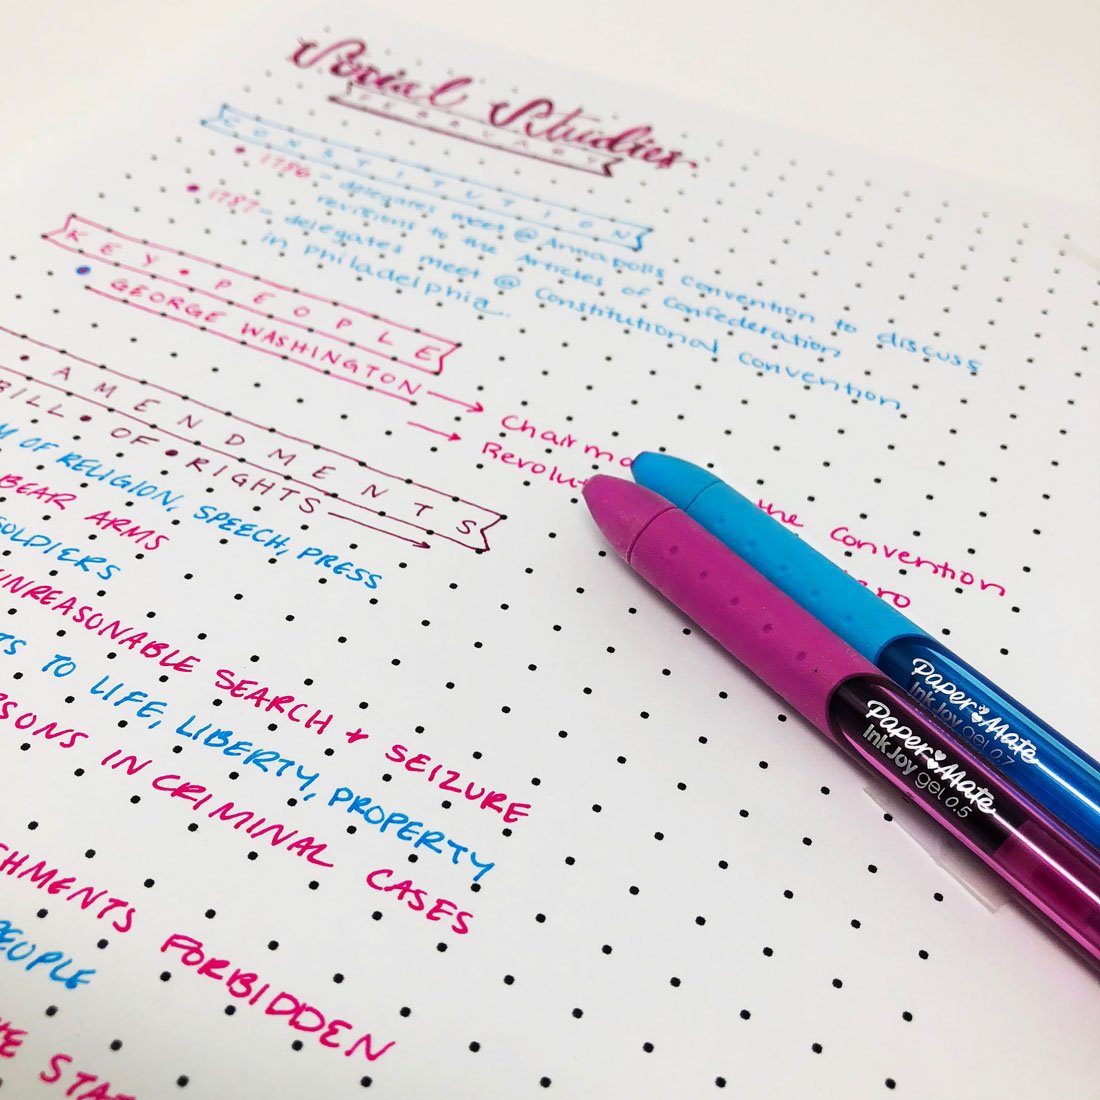 Social Studies
FEBRUARY
CONSTITUTION
1786 - delegates meet @ Annapolis Convention to discuss
revisions to the Articles of Confederation
1787 - delegates meet @ Constitutional Convention
in philadelphia.
KEY • PEOPLE
GEORGE WASHINGTON → Chairma the Convention
→ Revolu ero
AMENDMENTS
BILL • OF • RIGHTS →
M OF RELIGION, SPEECH, PRESS
BEAR ARMS
SOLDIERS
UNREASONABLE SEARCH + SEIZURE
TS TO LIFE, LIBERTY, PROPERTY
SONS IN CRIMINAL CASES
SHMENTS FORBIDDEN
PEOPLE
STAT
Paper Mate
InkJoy gel 0.7
Paper Mate
InkJoy gel 0.5